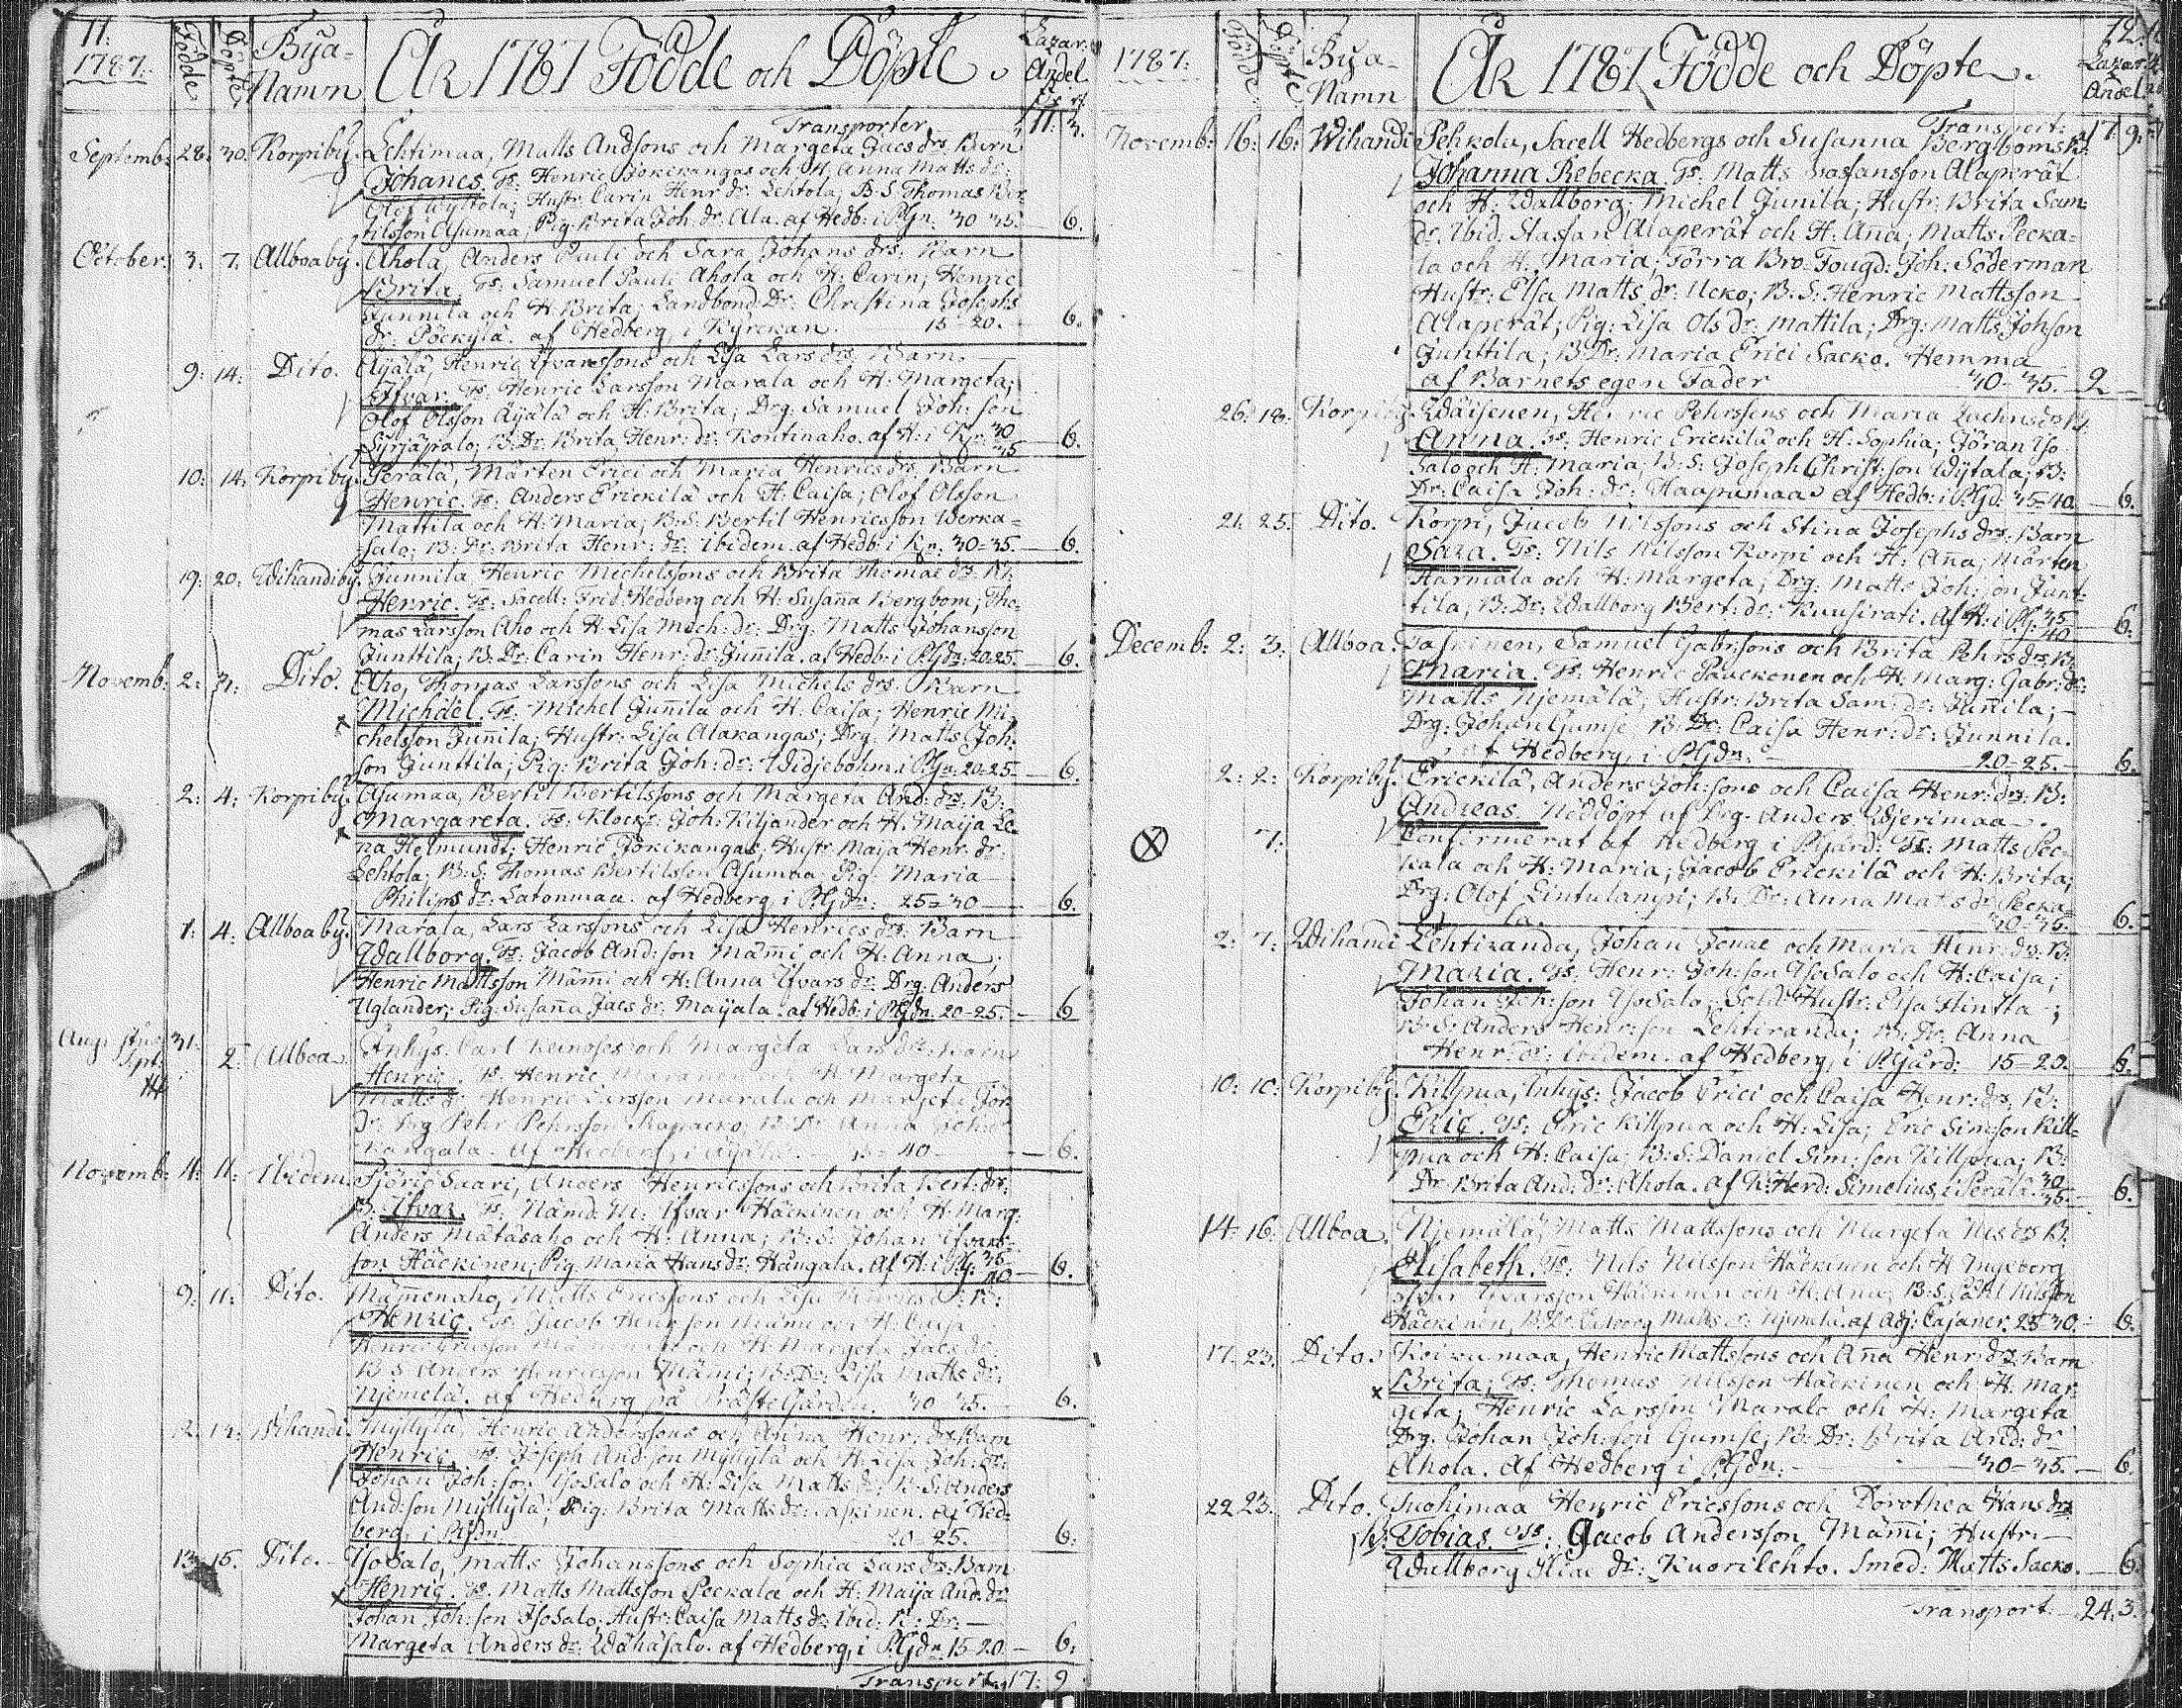 11.
1787.
Födde
Döpte
Bya-
Namn
År 1787 Födde och Döpte.
Lazar:
Andel.
Transporter 11: 3.
Septemb: 28. 30. Korpiby. Lehtimaa, Matts Andsons och Margeta Jacs drs Barn
Johanes. Ts: Henric Jokikangas och H. Anna Matts dr:
Olof Wyttola; Hustr. Carin Henr dr: Lehtola; B. S. Thomas Ber-
tilsson Asumaa; Pig. Brita Joh: dr: Ala. af Hedb: i PGn. 30 35. 6.
October: 3. 7. Allboaby. Ahola Anders Pauli och Sara Johans drs: Barn
Brita. Ts: Samuel Pauli Ahola och H: Carin; Henric
Junnila och H. Brita; Landbond: Dr: Christina Josephs
dr: Pöckylä. af Hedberg i Kyrckan. 15-20. 6.
9: 14: Dito. Äijälä, Henric Ifvarssons och Lisa Lars drs Barn.
Ifvar. Ts. Henric Larsson Marala och H: Margeta;
Olof Olsson Äyälä och H. Brita; Drg: Samuel Joh: son
Syrjäpalo; B: Dr. Brita Henr: dr: Kontinaho. af H: i K. 30 35 6.
10: 14: Korpiby. Perälä, Mårten Erici och Maria Henrics drs. Barn
Henric. Ts: Anders Erickilä och H. Caisa; Olof Olsson
Mattila och H: Maria; B: S: Bertil Henricsson Werka-
salo; B: Dr: Brita Henr: dr: ibidem. af Hedb: i Kyn: 30=35. 6.
19: 20: Wihandiby. Junnila Henric Michelssons och Brita Thomas dr: B:
Henric. Ts: Sacell: Frid: Hedberg och H: Susaña Bergbom; Tho-
mas Larsson Aho och H. Lisa Mich: dr: Drg: Matts Johansson
Junttila; B: Dr: Carin Henr: dr: Juñila. af Hedb: i PGdn: 20=25. 6.
Novemb: 2: 3: Dito. Aho, Thomas Larssons och Lisa Michels drs: Barn
Michäel. Ts: Michel Juñila och H: Caisa; Henric Mi-
chelsson Juñila; Hustr: Lisa Alakangas; Drg: Matts Joh:
son Junttila; Pig: Brita Joh: dr: Widjeböhm. i PGn: 20=25. 6.
2: 4: Korpiby. Asumaa, Bertil Bertilssons och Margeta And: drs: B:
Margareta. Ts: Klock: Joh: Kiljander och H. Maija Le-
na Helmundt; Henric Jokikangas; Hustr: Maija Henr: dr:
Lehtola; B: S: Thomas Bertilsson Asumaa; Pig: Maria
Philips dr: Latonmaa. af Hedberg, i PGdn: 25=30 6.
1: 4: Allboaby. Marala, Lars Larssons och Lisa Henrics drs: Barn
Wallborg. Ts: Jacob And: son Mäm̃i och H: Anna;
Henric Mattsson Mäm̃i och H: Anna Ifvars dr: Drg: Anders
Uglander; Pig: Susaña Jacs dr: Maijala. af Hedb: i PGdn 20-25. 6
Augustus 31. 2. Allboa. Inhys. Carl och Margeta Lars drs: Barn
Henric. Ts. Henric och H Margeta
Matts dr: Henric Larsson Marala och Margeta Joh:
Dr: Drg Pehr Pehrsson B: Dr Anna Joh: dr
Kangala. af Hedberg, i 40 6.
Novemb: 11: Ibidem. Suari, Anders Henricssons och Brita Bert: drs:
B. Ifvar. Ts. Nämd: M: Ifvar Häckinen och H: Marg:
Anders Mätäsaho och H: Anna; B: S: Johan Ifvars-
son Häckinen; Pig. Maria Hans dr: Hangala. Af H: i PG. 35 40 6.
9: 11: Dito. Mäm̃enaho, Matts Ericssons och Lisa B:
Henric. Ts: Jacob Henr: son Mämi och H: Caisa
Henric Ericsson och H: Margeta Jacs dr:
B: S Anders Henricsson Mäm̃i; B: Dr: Lisa Matts dr:
Njemelä. af Hedberg på PrästeGården. 30 35. 6.
12: Wihandi. Myllylä, Henric Anderssons och Anna Henr: drs Barn
Henric. Ts. Joseph And: son Myllylä och H: Lisa Joh: dr:
Johan Joh: son YsoSalo och H: Lisa Matts dr: B: S: Anders
And: son Myllylä; Pig: Brita Matts dr: Laskinen. af Hed-
berg, i PGdn. 20 25. 6:
13. 15. Dito. YsoSalo, Matts Johanssons och Sophia Lars drs: Barn
Henric. Ts. Matts Mattsson Peckala och H: Maija And: dr:
Johan Joh: son YsoSalo; Hustr: Caisa Matts dr: Ibid: B: Dr:
Margeta Anders dr: Wähäsalo. af Hedberg, i PGdn 15-20 6:
Transport 17: 9
1787:
Födde
Döpte
Bya-
Namn
År 1787 Födde och Döpte.
12.
Lazar:
Andel.
Transport: 17. 9:
Novemb: 16: 16: Wihandi Pehkola, Sacell Hedbergs och Susanna Bergboms B:
Johanna Rebecka Ts: Matts Staffansson Alaperät
och H: Wallborg; Michel Junila; Hustr: Brita Sam:
dr: Ibid. Staffan Alaperät och H: Aña; Matts Pecka-
la och H: Maria; Förra Bro-Fougd: Joh: Söderman
Hustr: Elsa Matts dr: Ucko; B: S: Henric Mattsson
Alaperät; Pig: Lisa Ols dr: Mattila; Drg: Matts Johson
Junttila; B: Dr: Maria Erici Sacko. Hemma
af Barnets egen Fader 30-35. 2
26. 18. Korpiby. Wäisenen, Henric Pehrssons och Maria B:
Anna. Ts: Henric Erickilä och H: Sophia; Göran Yso
Salo och H: Maria; B: S: Joseph Christ: son Wytala; B:
Dr: Caisa Joh: dr: Haapamaa af Hedb: i PGd: 35-40. 6.
21. 25. Dito. Korpi, Jacob Nilssons och Stina Josephs drs: Barn
Sara. Ts: Nils Nilsson Korpi och H: Aña; Mårten
Harmala och H: Margeta; Drg: Matts Joh: son Junt-
tila; B: Dr: Wallborg Bert: dr: Kuusirati. Af H: i PG. 35 40 6:
Decemb: 2: 3: Allboa. Laskinen, Samuel Gabr: sons och Brita Pehrs drs: B:
Maria. Ts: Henric Pauckonen och H: Marg: Gabr: dr:
Matts Njemälä; Hustr: Brita Sam: dr: Juñila;
Drg: Johan Gumse; B: Dr: Caisa Henr: dr: Junnila.
af Hedberg, i PGdn. 20-25. 6.
2: 2: Korpiby. Erickilä, Anders Joh: sons och Caisa Henr: drs: B:
Andreas. Nöddöpt af Drg. Anders Wjerimaa.
7: Confirmerat af Hedberg i PGård: Ts: Matts Pec-
kala och H: Maria; Jacob Erickilä och H: Brita;
Drg: Olof Lintulampi; B: Dr: Anna Mats dr Pecka-
la. 30-35. 6.
2: 7: Wihandi Lehtiranda, Johan Jonae och Maria Henr: drs: B:
Maria. Ts: Henr: Joh: son YsoSalo och H: Caisa;
Johan Joh: son YsoSalo; Sold: Hustr: Lisa Hintta;
B: S: Anders Henr: son Lehtiranda; B: Dr: Anna
Henr: dr: ibidem. af Hedberg, i PGård: 15=20. 6.
10: 10: Korpiby. Killpua, Inhys: Jacob Erici och Caisa Henr: drs: B:
Eric. Ts: Eric Killpua och H: Lisa; Eric Simson Kill-
pua och H: Caisa; B: S: Daniel Sim: son Killpua; B:
Dr Brita And: dr: Ahola. af K: Herd: Simelius, i Perälä. 30 35. 6.
14: 16: Allboa. Njemälä, Matts Mattssons och Margeta Nils drs B:
Elisabeth. Ts: Nils Nilsson Häckinen och H Ingeborg
Ifvarsson Häckinen och H: Ana; B: S: Nilsson
Häckinen, B: Dr: Walborg Matts dr: Njemelä. af Adj: Cajaner. 25 30. 6.
17. 23. Dito. Koivumaa, Henric Mattssons och Aña Henr: drs Barn
Brita; Ts: Thomas Nilsson Häckinen och H: Mar-
geta; Henric Larsson Marala och H: Margeta
Drg. Johan Joh: son Gumse; B: Dr: Brita And: dr
Ahola. Af Hedberg i PGdn. 30-35. 6.
22 23. Dito. Suohimaa Henric Ericssons och Dorothea Hans drs
B: Tobias. Ts: Jacob Andersson Mäm̃i; Hustr:
Wallborg Eliae dr: Kuorilehto. Smed: Matts Sacko. 6.
Transport. 24: 3.